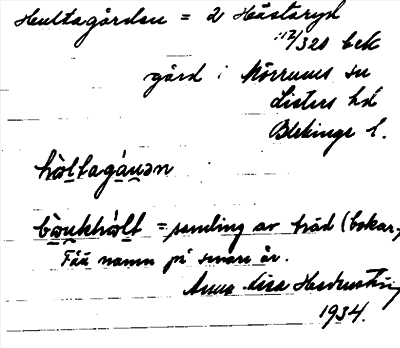 Hultagården = 2 Hästaryd
112/320 bek
gård i Mörrums sn
Listers hd
Blekinge l.
hòltagá̱u̱ən
bò̱u̱khòlt = samling av träd (bokar,
Fää namn på smare är.
Anna Lisa
1934.